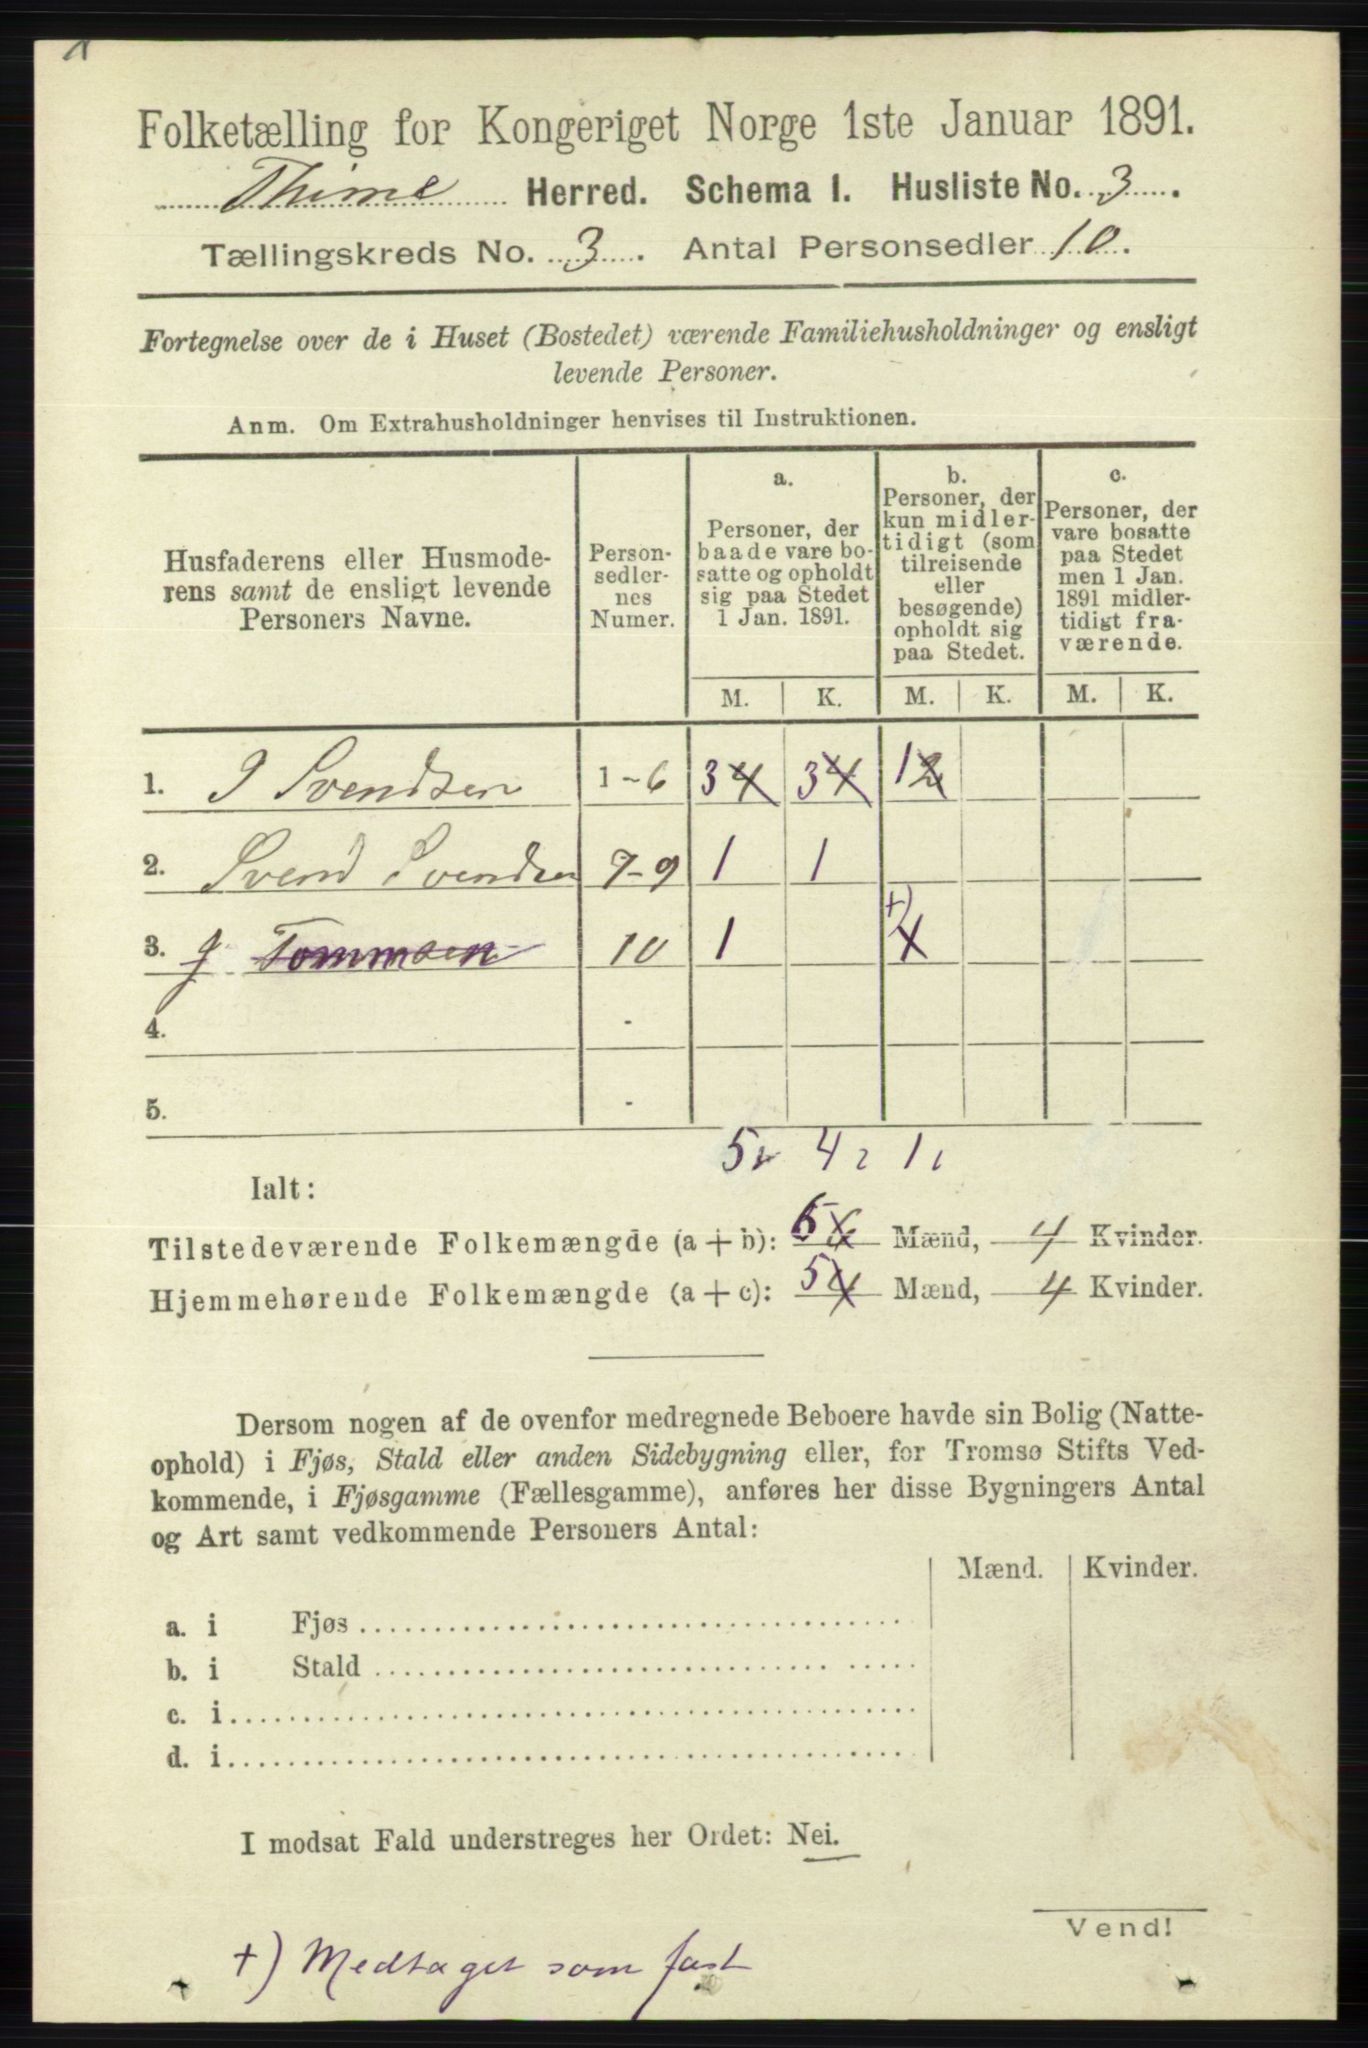 Folketælling for Kongeriget Norge 1ste Januar 1891.
Thime Herred. Schema I. Husliste No. 3.
Tællingskreds No. 3. Antal Personsedler 10.
Fortegnelse over de i Huset (Bostedet) værende Familiehusholdninger og ensligt
levende Personer.
Anm. Om Extrahusholdninger henvises til Instruktionen.
Husfaderens eller Husmode-
rens samt de ensligt levende
Personers Navne.
Person-
sedler-
nes
Numer.
a.
Personer, der
baade vare bo-
satte og opholdt
sig paa Stedet
1 Jan. 1891.
b.
Personer, der
kun midler-
tidigt (som
tilreisende
eller
besøgende)
opholdt sig
paa Stedet.
c.
Personer, der
vare bosatte
paa Stedet
men 1 Jan.
1891 midler-
tidigt fra-
værende.
M. K. M. K. M. K.
1. J Svendsen 1-6 3 4 3 4 1 2
2. Svend Svendsen 7-9 1 1
3. J Tommsen 10 1 +)
4. -
5. -
5 4 1
Ialt:
Tilstedeværende Folkemængde (a + b): 6 Mænd, 4 Kvinder.
Hjemmehørende Folkemængde (a + c): 5 4 Mænd, 4 Kvinder.
Dersom nogen af de ovenfor medregnede Beboere havde sin Bolig (Natte-
ophold) i Fjøs, Stald eller anden Sidebygning eller, for Tromsø Stifts Ved-
kommende, i Fjøsgamme (Fællesgamme), anføres her disse Bygningers Antal
og Art samt vedkommende Personers Antal:
Mænd. Kvinder.
a. i Fjøs
b. i Stald
c. i
d. i
I modsat Fald understreges her Ordet: Nei.
Vend!
+) Medtaget som fast